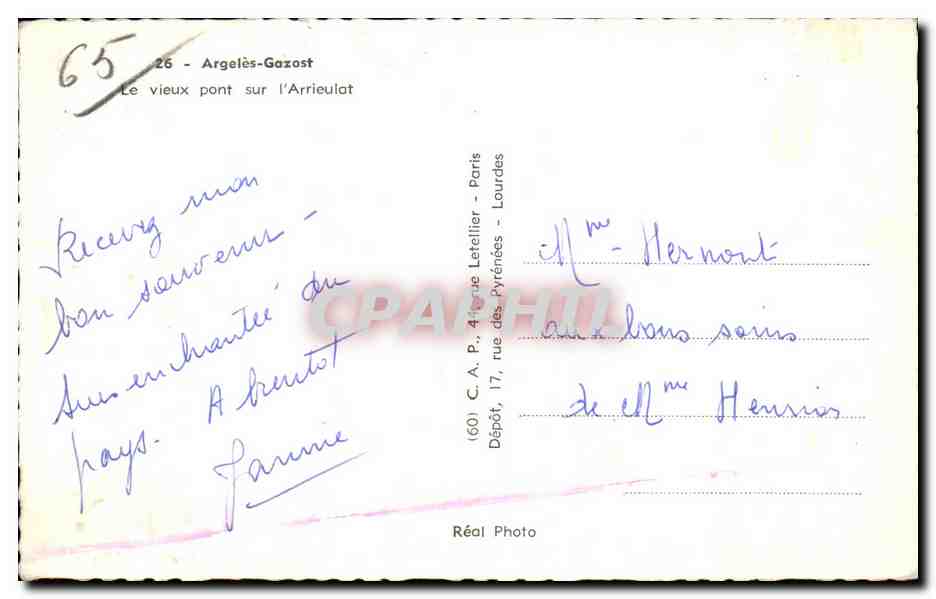 65
26 - Argelès-Gazost
Le vieux pont sur l'Arrieulat
Recevez mon
bon souvenir -
Suis enchantée du
pays. A bientot
Jannie
(60) C. A. P., 44, rue Letellier - Paris
Dépôt, 17, rue des Pyrénées - Lourdes
CPAPHIL
Mme - Hermont
aux bons soins
de Mme
Réal Photo